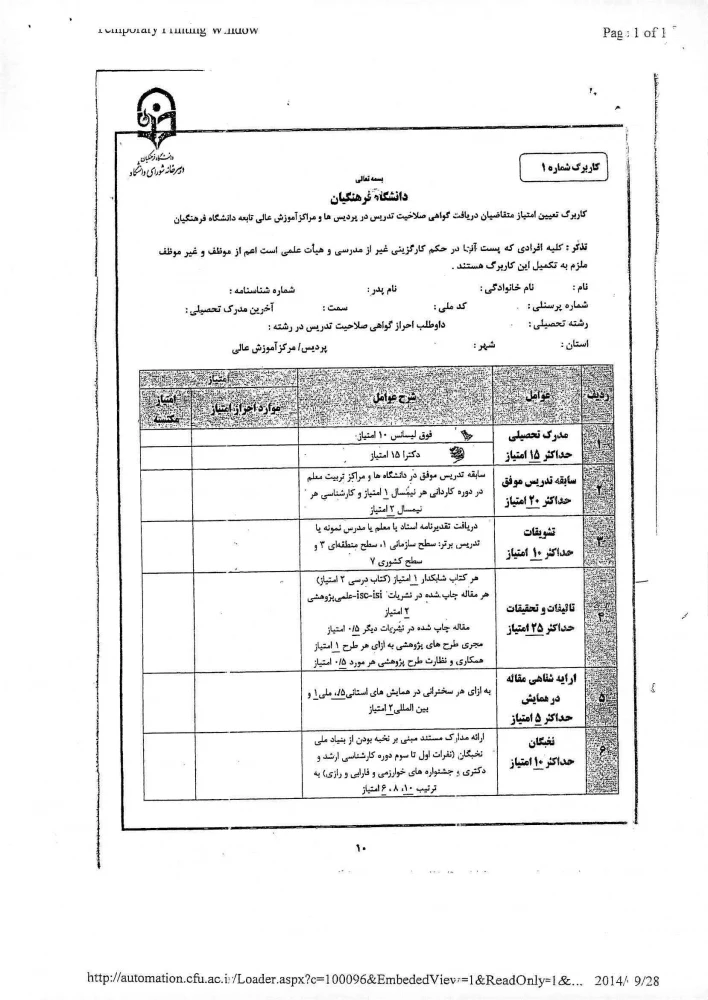 Temporary Printing Window
Page 1 of 1
دانشگاه فرهنگیان
دبیرخانه شورای دانشگاه
کاربرگ شماره ۱
بسمه تعالی
دانشگاه فرهنگیان
کاربرگ تعیین امتیاز متقاضیان دریافت گواهی صلاحیت تدریس در پردیس ها و مراکز آموزش عالی تابعه دانشگاه فرهنگیان
تذکر : کلیه افرادی که پست آنها در حکم کارگزینی غیر از مدرسی و هیأت علمی است اعم از موظف و غیر موظف
ملزم به تکمیل این کاربرگ هستند .
نام : نام خانوادگی : نام پدر : شماره شناسنامه :
شماره پرسنلی : کد ملی : سمت : آخرین مدرک تحصیلی :
رشته تحصیلی : داوطلب احراز گواهی صلاحیت تدریس در رشته :
استان : شهر : پردیس/ مرکز آموزش عالی
ردیف عوامل شرح عوامل امتیاز
موارد احراز امتیاز امتیاز
مکتسبه
۱ مدرک تحصیلی
حداکثر ۱۵ امتیاز
فوق لیسانس ۱۰ امتیاز
دکترا ۱۵ امتیاز
۲ سابقه تدریس موفق
حداکثر ۲۰ امتیاز
سابقه تدریس موفق در دانشگاه ها و مراکز تربیت معلم
در دوره کاردانی هر نیمسال ۱ امتیاز و کارشناسی هر
نیمسال ۲ امتیاز
۳ تشویقات
حداکثر ۱۰ امتیاز
دریافت تقدیرنامه استاد یا معلم یا مدرس نمونه یا
تدریس برتر: سطح سازمانی ۱، سطح منطقه‌ای ۳ و
سطح کشوری ۷
۴ تالیفات و تحقیقات
حداکثر ۲۵ امتیاز
هر کتاب شابکدار ۱ امتیاز (کتاب درسی ۲ امتیاز)
هر مقاله چاپ شده در نشریات isc-isi-علمی‌پژوهشی
۲ امتیاز
مقاله چاپ شده در نشریات دیگر ۰/۵ امتیاز
مجری طرح های پژوهشی به ازای هر طرح ۱ امتیاز
همکاری و نظارت طرح پژوهشی هر مورد ۰/۵ امتیاز
۵ ارایه شفاهی مقاله
در همایش
حداکثر ۵ امتیاز
به ازای هر سخنرانی در همایش های استانی ۰/۵، ملی ۱ و
بین المللی ۲ امتیاز
۶ نخبگان
حداکثر ۱۰ امتیاز
ارائه مدارک مستند مبنی بر نخبه بودن از بنیاد ملی
نخبگان (نفرات اول تا سوم دوره کارشناسی ارشد و
دکتری و جشنواره های خوارزمی و فارابی و رازی) به
ترتیب ۱۰، ۸، ۶ امتیاز
۱۰
http://automation.cfu.ac.ir/Loader.aspx?c=100096&EmbededView=1&ReadOnly=1&... 2014/09/28